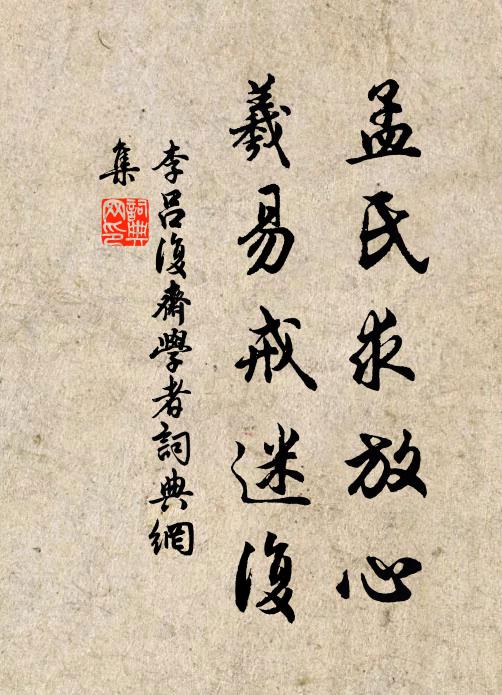 孟氏求放心
羲易戒迷復
李呂復齋學者詞典網
集
詞典網印